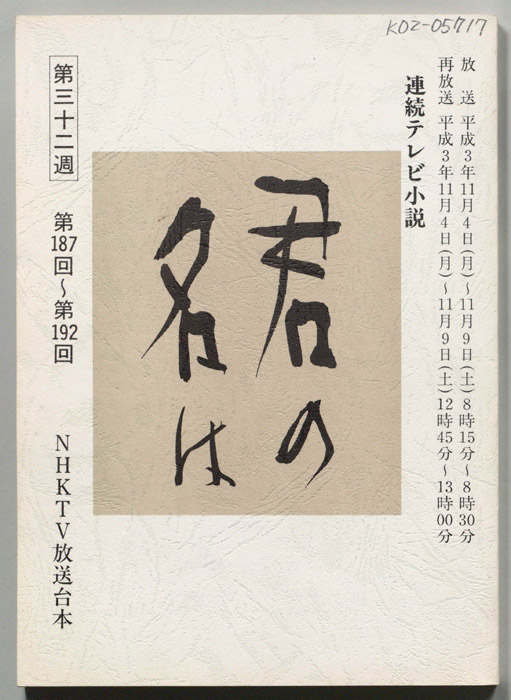 KD2-05717
放　送　平成3年11月4日(月)～11月9日(土)8時15分～8時30分
再放送　平成3年11月4日(月)～11月9日(土)12時45分～13時00分
連続テレビ小説
君の
名は
第三十二週　第187回～第192回　NHKTV放送台本